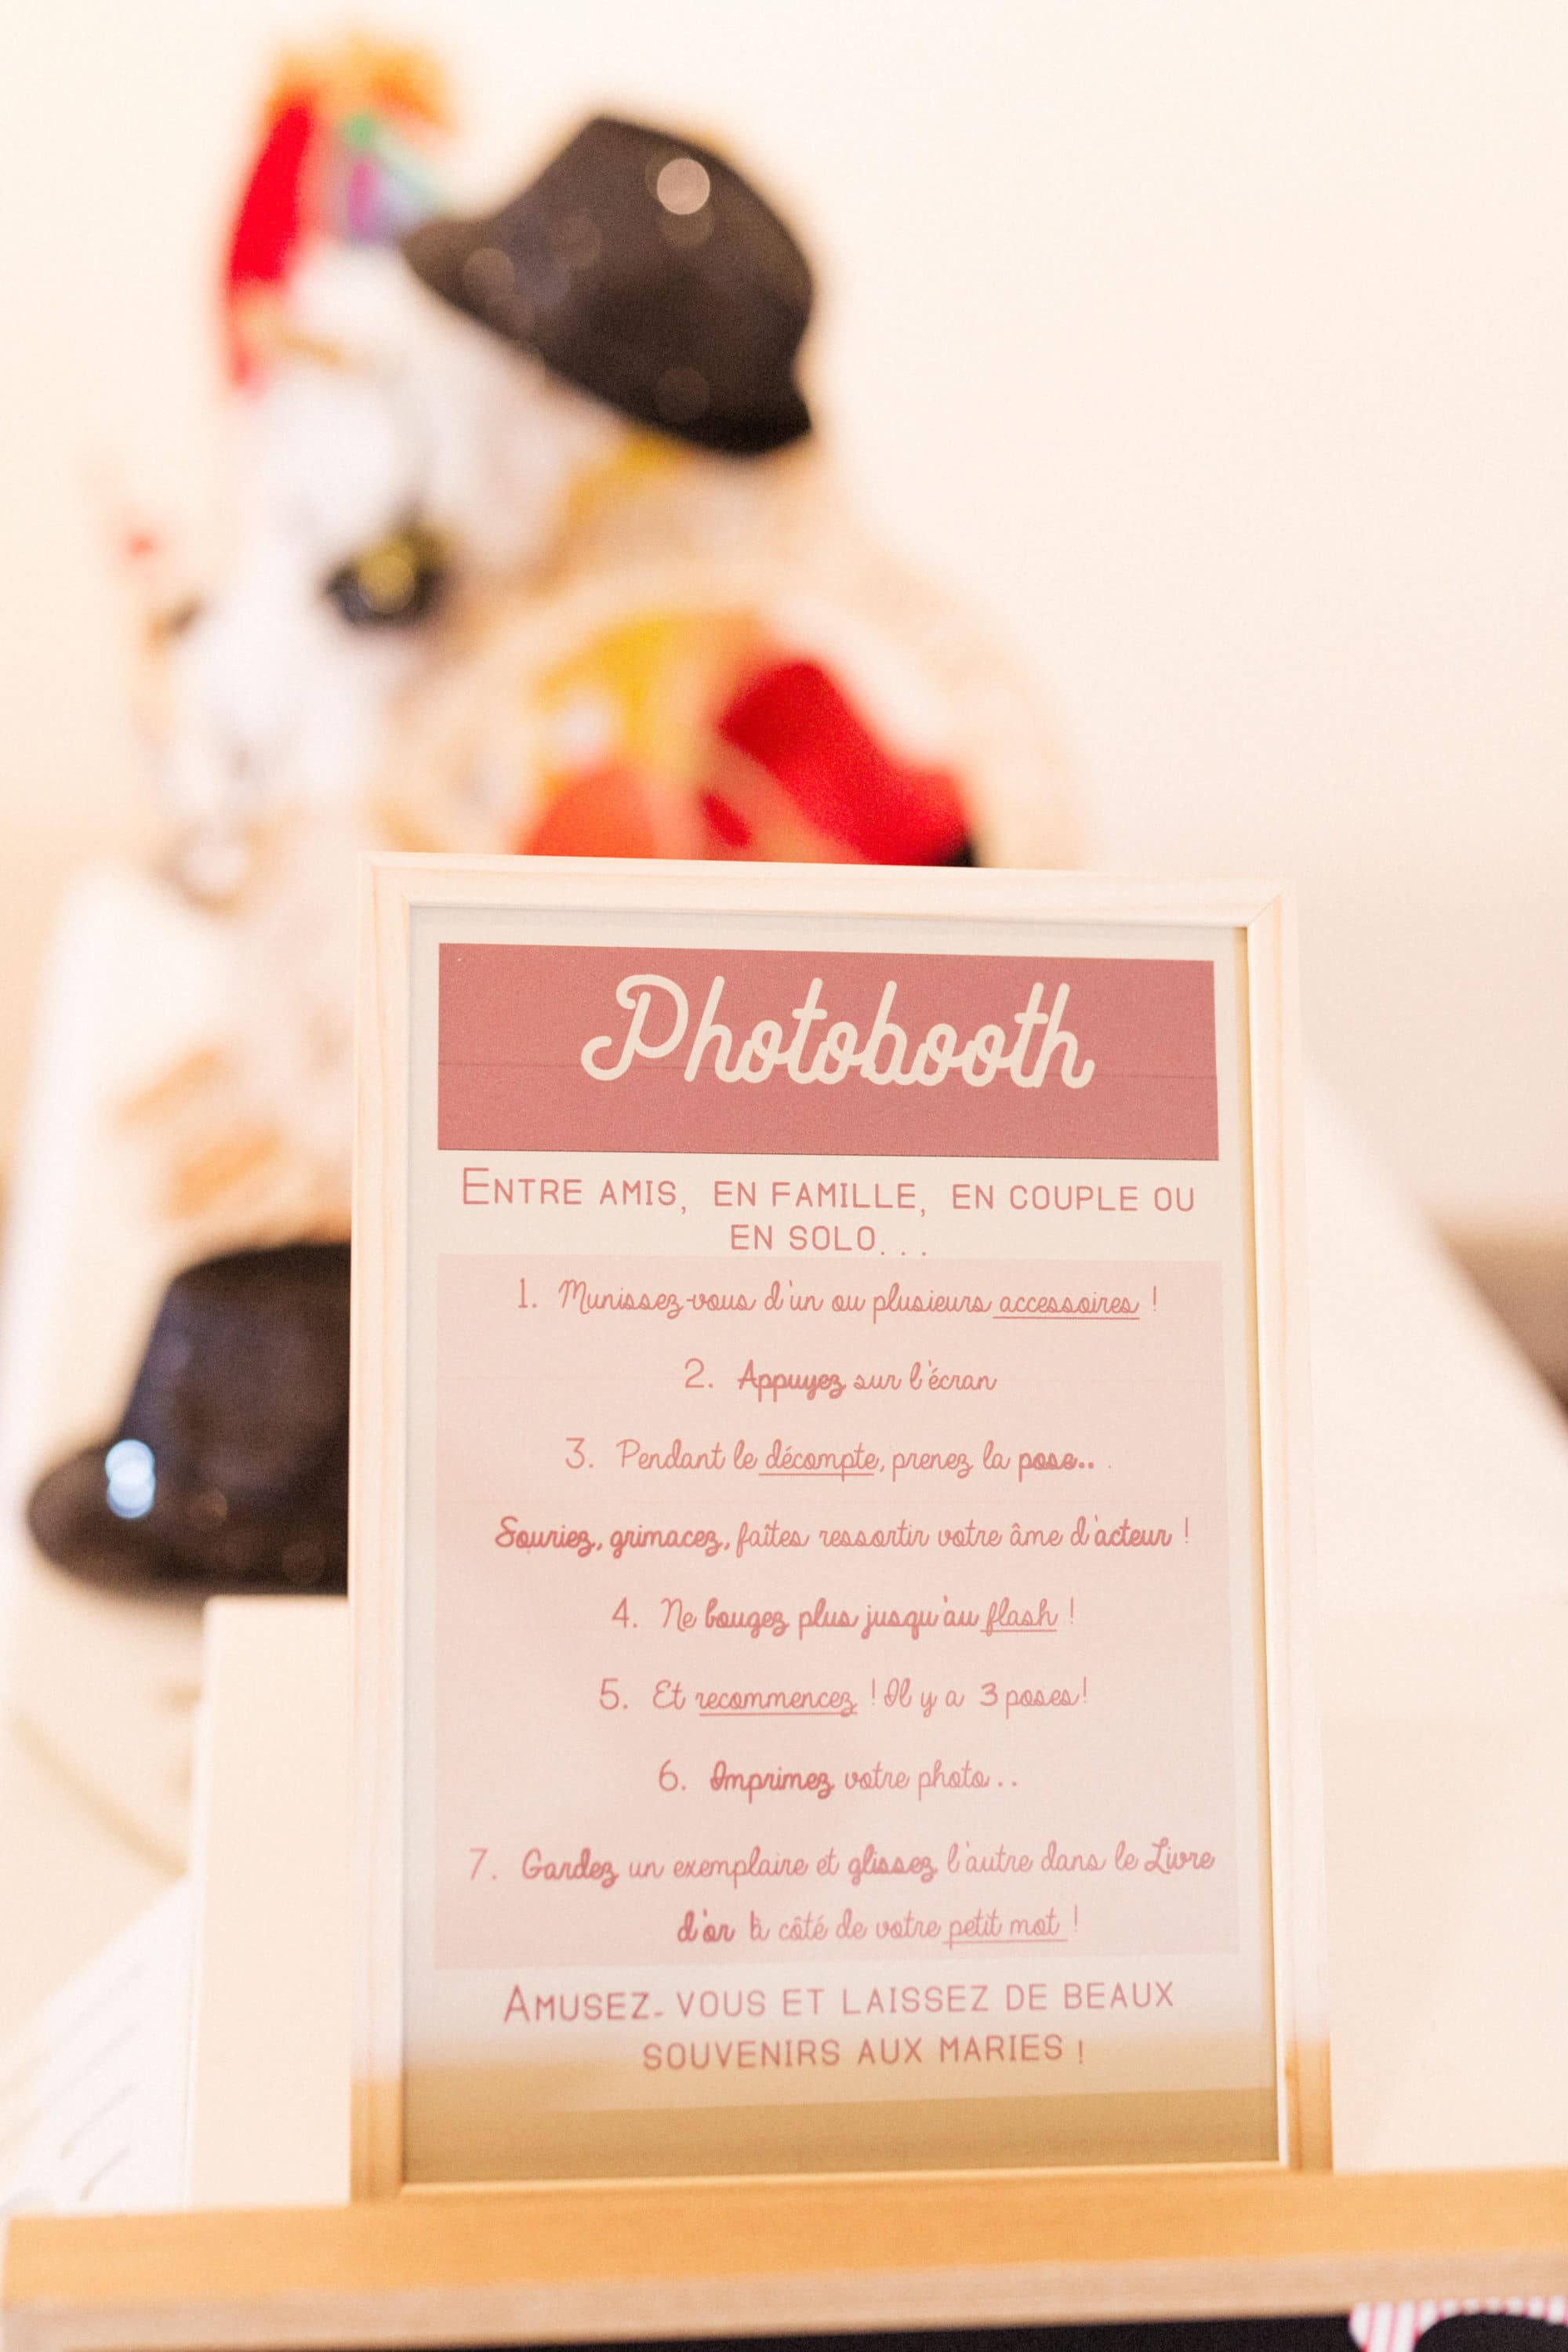 Photobooth
ENTRE AMIS, EN FAMILLE, EN COUPLE OU
EN SOLO...
1. Munissez-vous d'un ou plusieurs accessoires !
2. Appuyez sur l'écran
3. Pendant le décompte, prenez la pose...
Souriez, grimacez, faîtes ressortir votre âme d'acteur !
4. Ne bougez plus jusqu'au flash !
5. Et recommencez ! Il y a 3 poses!
6. Imprimez votre photo..
7. Gardez un exemplaire et glissez l'autre dans le Livre
d'or à côté de votre petit mot !
AMUSEZ-VOUS ET LAISSEZ DE BEAUX
SOUVENIRS AUX MARIES !